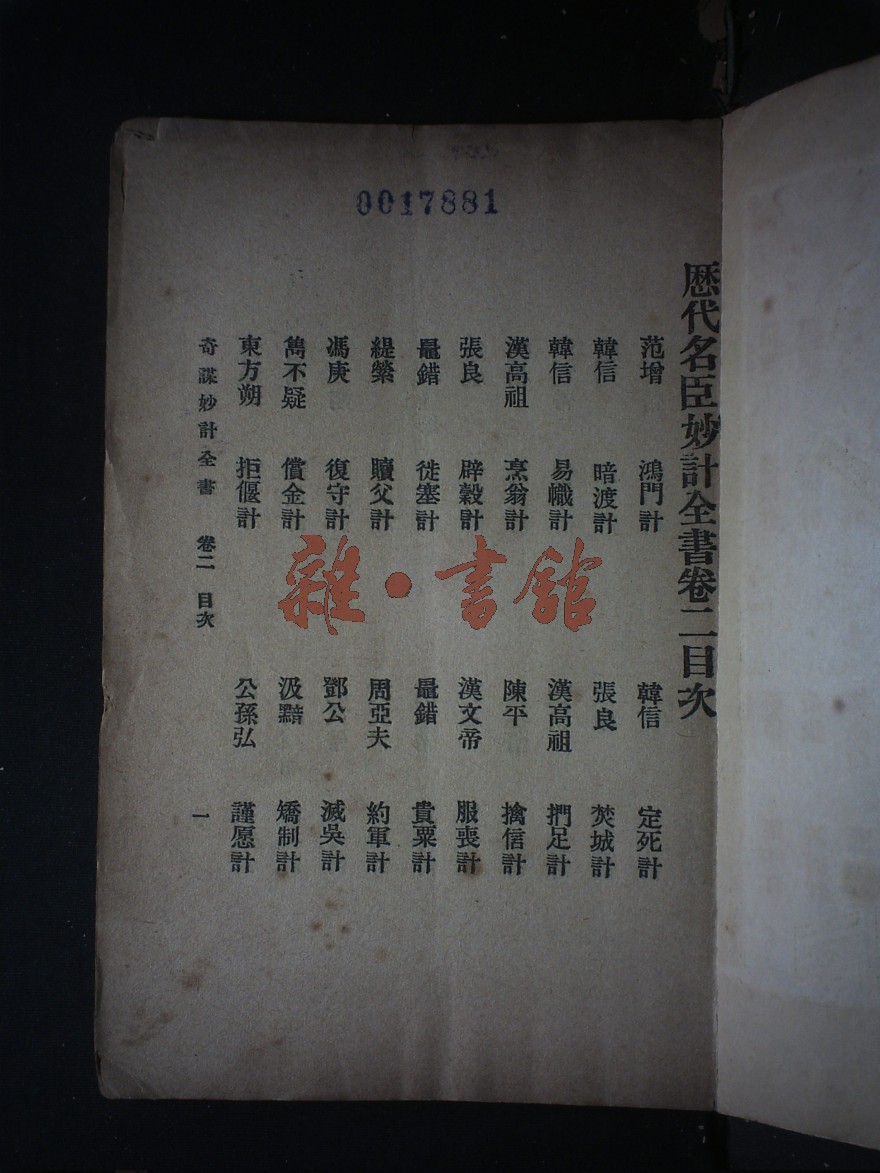 0017881
歷代名臣妙計全書卷二目次
范增 鴻門計 韓信 定死計
韓信 暗渡計 張良 焚城計
韓信 易幟計 漢高祖 捫足計
漢高祖 烹翁計 陳平 擒信計
張良 辟穀計 漢文帝 服喪計
鼂錯 徙塞計 鼂錯 貴粟計
緹縈 贖父計 周亞夫 約軍計
馮庚 復守計 鄧公 滅吳計
雋不疑 償金計 汲黯 矯制計
東方朔 拒偃計 公孫弘 謹愿計
奇謀妙計全書 卷二 目次 一
雜·書館